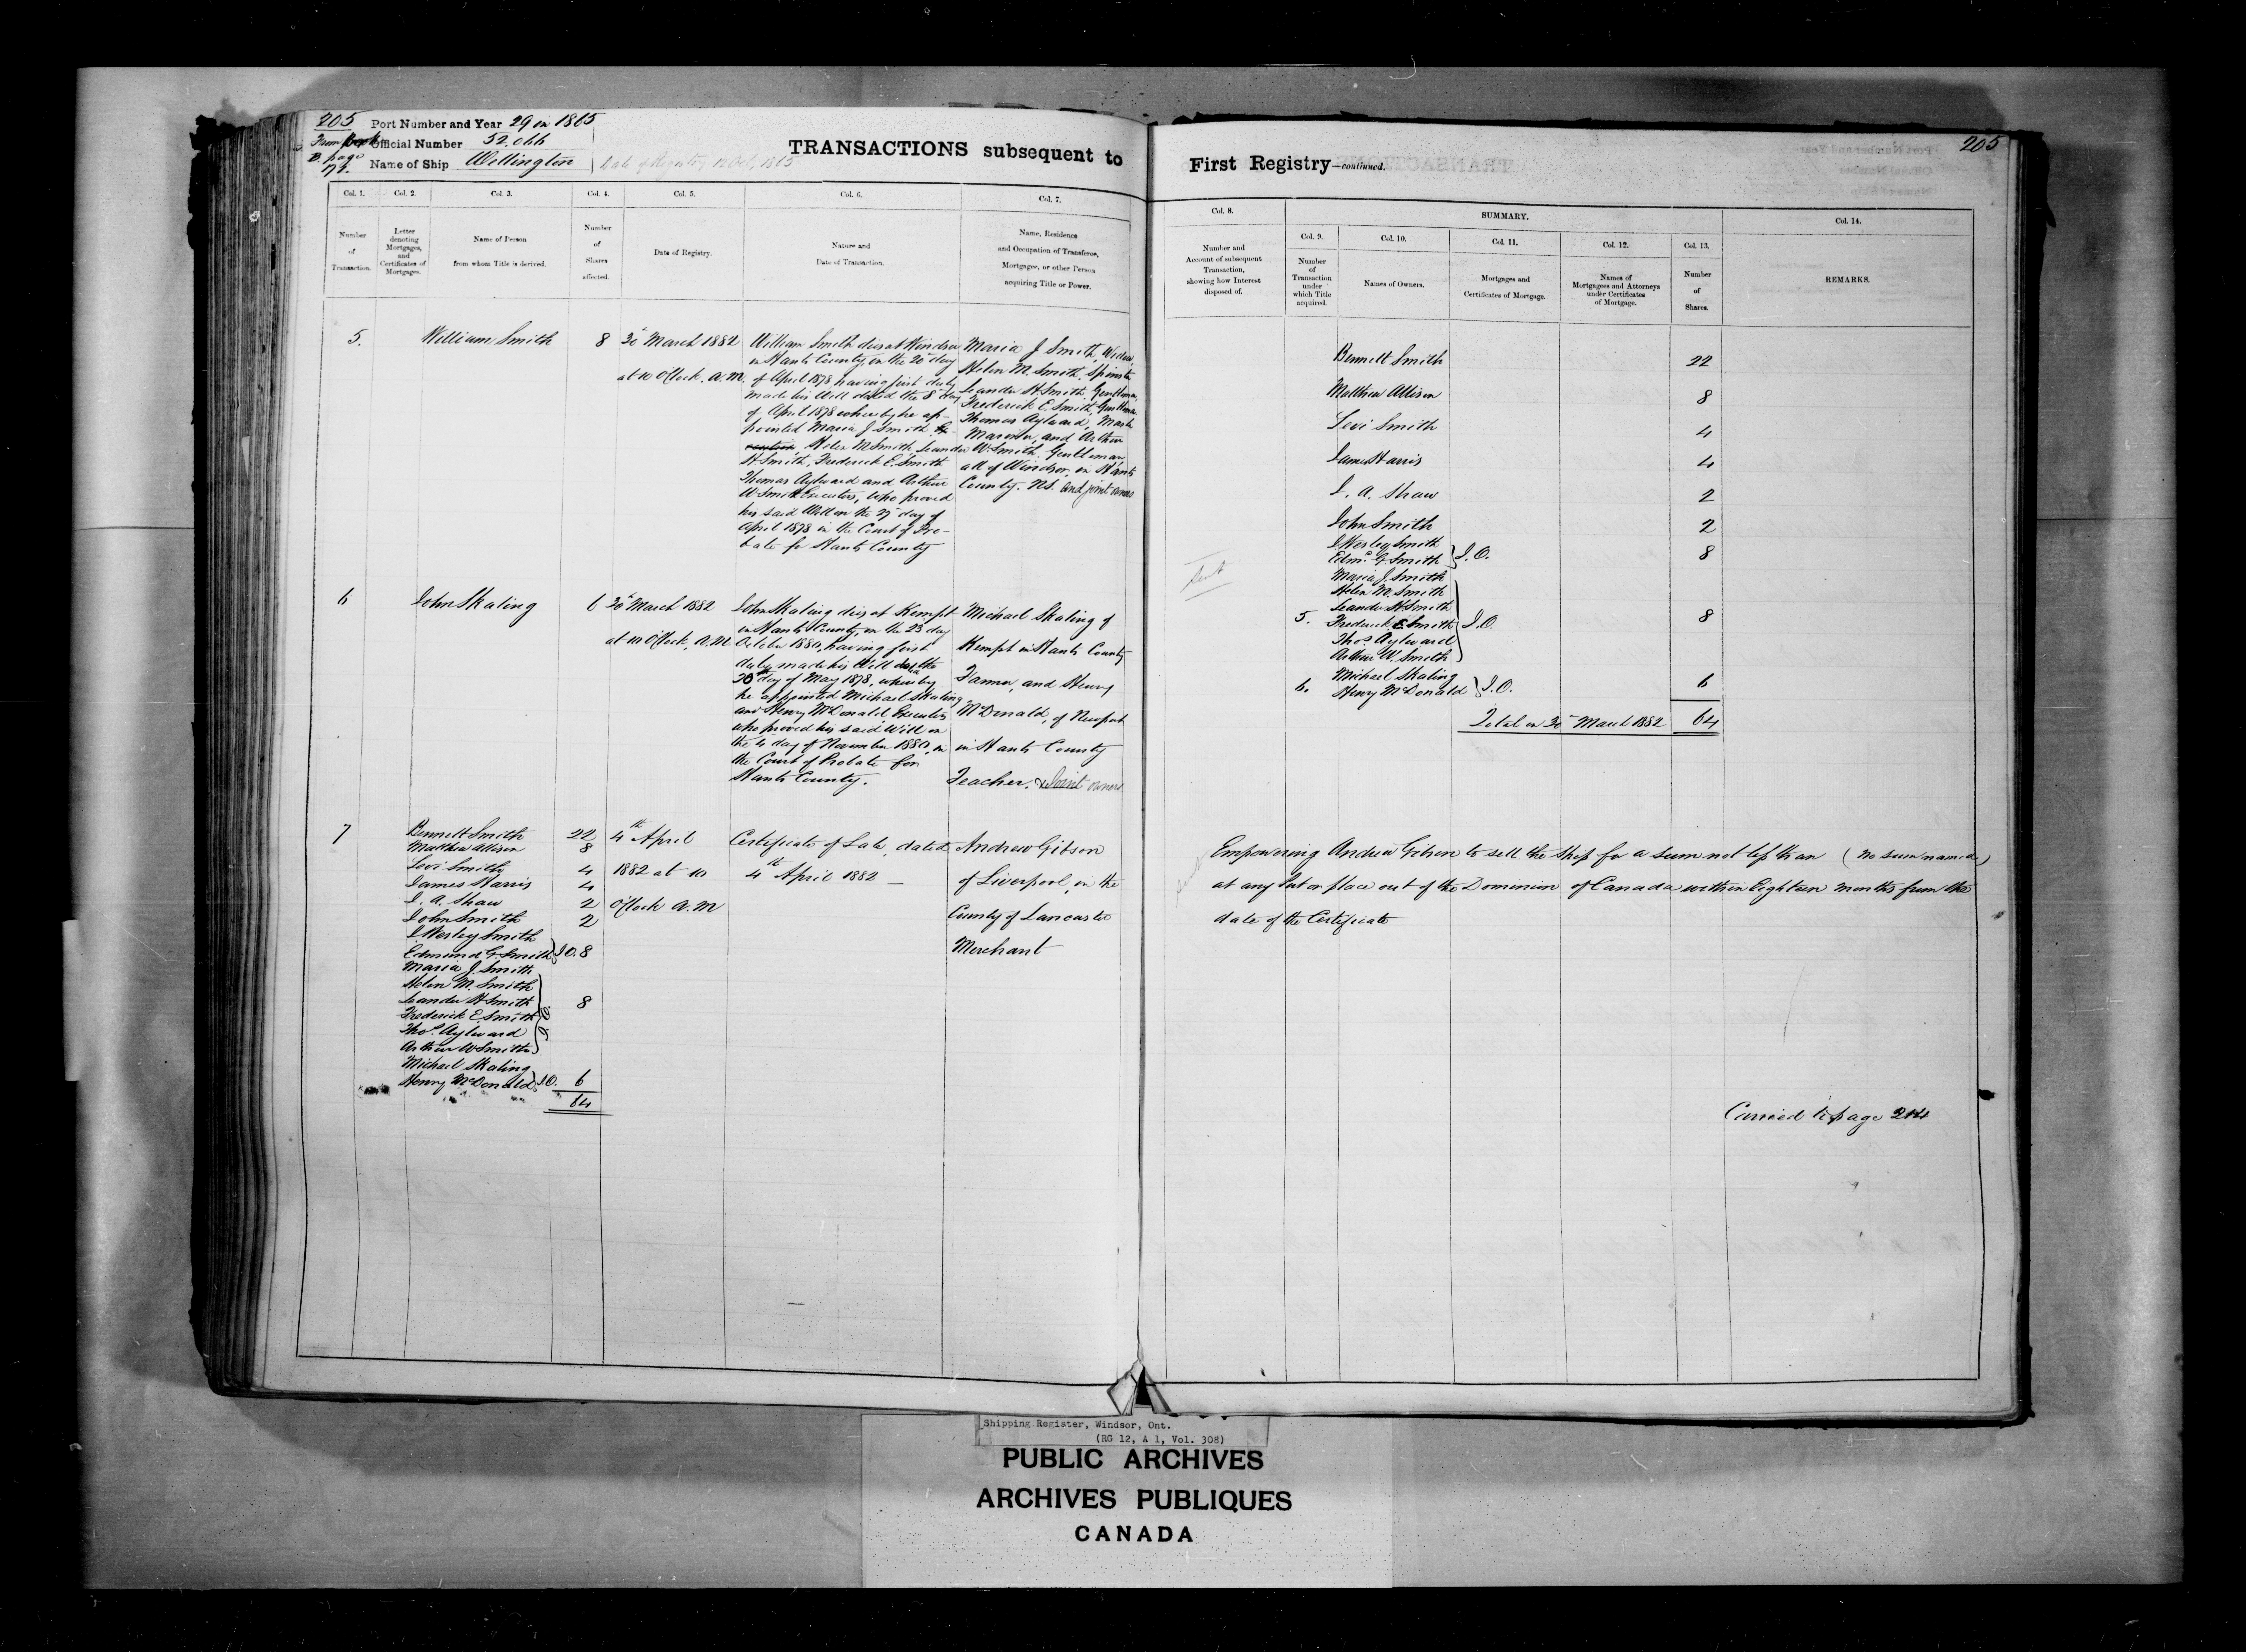 205
Port Number and Year 29 in 1865
From Book
B. page
Official Number 52.066
Name of Ship Wellington
Date of Registry 12 Oct. 1865
TRANSACTIONS subsequent to
First Registry—continued.
205
Col. 1.
Number
of
Transaction.
Col. 2.
Letter
denoting
Mortgages,
and
Certificates of
Mortgages.
Col. 3.
Name of Person
from whom Title is derived.
Col. 4.
Number
of
Shares
affected.
Col. 5.
Date of Registry.
Col. 6.
Nature and
Date of Transaction.
Col. 7.
Name, Residence
and Occupation of Transferee,
Mortgagee, or other Person
acquiring Title or Power.
Col. 8.
Number and
Account of subsequent
Transaction,
showing how Interest
disposed of.
SUMMARY.
Col. 9.
Number
of
Transaction
under
which Title
acquired.
Col. 10.
Names of Owners.
Col. 11.
Mortgages and
Certificates of Mortgage.
Col. 12.
Names of
Mortgagees and Attorneys
under Certificates
of Mortgage.
Col. 13.
Number
of
Shares.
Col. 14.
REMARKS.
5.
William Smith
8
30 March 1882
at 10 O'Clock, A.M.
William Smith dies at Windsor
in Hants County, on the 20 day
of April 1878 having first duly
made his Will dated the 8 day
of April 1878 whereby he ap-
pointed Maria J Smith Ex-
ecutrix Helen M Smith, Leander
H Smith, Frederick E. Smith
Thomas Aylward and Arthur
W Smith Executors, who proved
his said Will on the 27 day of
April 1878 in the Court of Pro-
bate for Hants County
Maria J Smith, Widow,
Helen M. Smith, Spinster
Leander H Smith, Gentleman,
Frederick E Smith, Gentleman
Thomas Aylward, Master
Mariner, and Arthur
W Smith, Gentleman,
all of Windsor, in Hants
County. N.S. and joint owners
6
John Skaling
6
30 March 1882
at 10 O'Clock, A.M.
John Skaling dies at Kempt
in Hants County, on the 23 day
October 1880, having first
duly made his Will dated the
30th day of May 1878, whereby
he appointed Michael Skaling
and Henry McDonald, Executors
who proved his said Will on
the 4 day of November 1880, in
the Court of Probate for
Hants County.
Michael Skaling of
Kempt in Hants County
Farmer, and Henry
McDonald, of Newport
in Hants County
Teacher. & Joint owners
7
Bennett Smith 22
Matthew Allison 8
Levi Smith 4
James Harris 4
J. A. Shaw 2
John Smith 2
J Wesley Smith
Edmund G. Smith } J.O. 8
Maria J. Smith
Helen M. Smith
Leander H Smith
Frederick E. Smith
Thos. Aylward
Arthur W Smith } J.O. 8
Michael Skaling
Henry McDonald } J.O. 6
64
4th April
1882 at 10
O'Clock A.M
Certificate of Sale, dated
4th April 1882 —
Andrew Gibson
of Liverpool, in the
County of Lancaster
Merchant
Bennett Smith 22
Matthew Allison 8
Levi Smith 4
James Harris 4
J. A. Shaw 2
John Smith 2
J Wesley Smith
Edmd. G Smith } J.O. 8
Maria J. Smith
Helen M. Smith
Leander H Smith
5. Frederick E Smith } J.O. 8
Thos Aylward
Arthur W. Smith
Michael Skaling
6. Henry McDonald } J.O. 6
Total on 30 March 1882 64
Empowering Andrew Gibson to sell the Ship for a sum not less than (no sum named)
at any Port or place out of the Dominion of Canada within Eighteen months from the
date of the Certificate
Carried to page 214
Shipping Register, Windsor, Ont.
(RG 12, A 1, Vol. 308)
PUBLIC ARCHIVES
ARCHIVES PUBLIQUES
CANADA